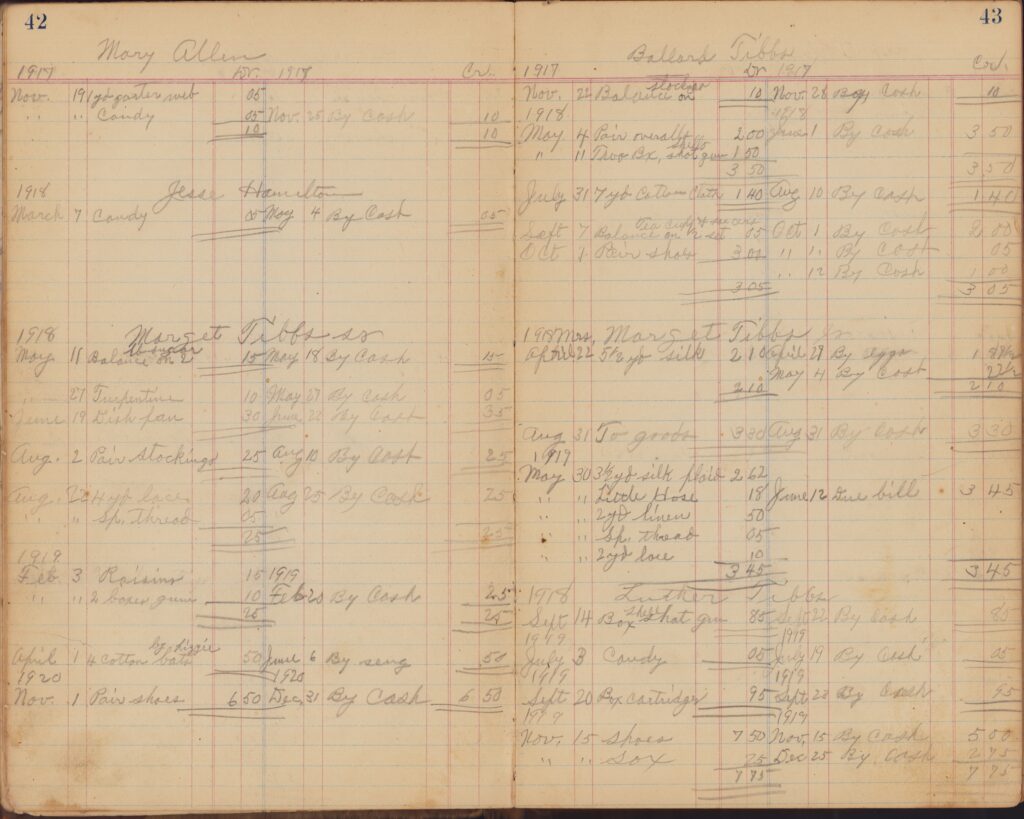 42
Mary Allen
1917 Dr. 1917 Cr.
Nov. 19 1 yd garter web 05
" " Candy 05 Nov. 25 By Cash 10
10 10
1918 Jesse Hamilton
March 7 Candy 05 May 4 By Cash 05
1918 Marget Tibbs sr
May 11 Balance on 15 May 18 By Cash 15
" 27 Turpentine 10 May 27 By Cash 05
June 19 Dish pan 30 June 22 By Cash 35
Aug. 2 Pair stockings 25 Aug 10 By Cash 25
Aug. 22 4 yd lace 20 Aug 25 By Cash 25
" " Sp. thread 05
25 25
1919
Feb. 3 Raisins 15 1919
" " 2 boxes gum 10 Feb 20 By Cash 25
25 25
by Lizzie
April 1 4 cotton bats 50 June 6 By seng 50
1920 1920
Nov. 1 Pair shoes 6 50 Dec. 31 By Cash 6 50
43
Ballard Tibbs
1917 Dr 1917 Cr.
Nov. 22 Balance on 10 Nov. 28 By Cash 10
1918 1918
May 4 Pair overalls 2 00 June 1 By Cash 3 50
" 11 Two Bx, shot gun shells 1 50
3 50 3 50
July 31 7 yd Cotton Cloth 1 40 Aug 10 By Cash 1 40
Tea cups & saucers
Sept 7 Balance on 1/2 set 05 Oct 1 By Cash 2 00
Oct 1 Pair shoes 3 00 " " By Cash 05
" 12 By Cash 1 00
3 05 3 05
1918 Mrs, Marget Tibbs Jr
April 22 5 1/2 yd silk 2 10 April 29 By eggs 1 87 1/2
May 4 By Cash 22 1/2
2 10 2 10
Aug 31 To goods 3 30 Aug 31 By Cash 3 30
1919
May 30 3 1/2 yd silk plaid 2 62
" " Little Hose 18 June 12 Due bill 3 45
" " 2 yd linen 50
" " Sp. thread 05
" " 2 yd lace 10
3 45 3 45
1918 Luther Tibbs
Sept 14 Box shells shot gun 85 Sept 22 By Cash 85
1919 1919
July 3 Candy 05 July 19 By Cash 05
1919 1919
Sept 20 Bx Cartridges 95 Sept 23 By Cash 95
1919 1919
Nov. 15 Shoes 7 50 Nov. 15 By Cash 5 00
" " Sox 25 Dec 25 By Cash 2 75
7 75 7 75